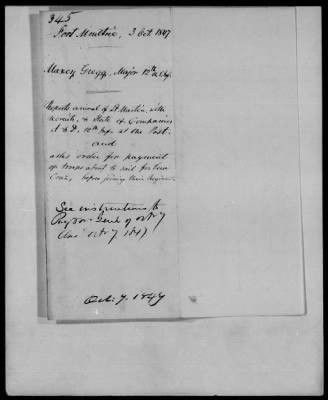 345
Fort Moultrie, 3 Oct. 1847
Maxcy Gregg, Major 12th Infy.
Reports arrival of Lt. Martin, with
recruits, & State of Companies
A & D, 12th Infy. at the Post.
and
asks order for payment
of troops about to sail for Vera
Cruz, before joining their Regiment.
See instructions to
Paymr. Genl. of Oct. 7
Oct 7 1847
Oct. 7. 1847